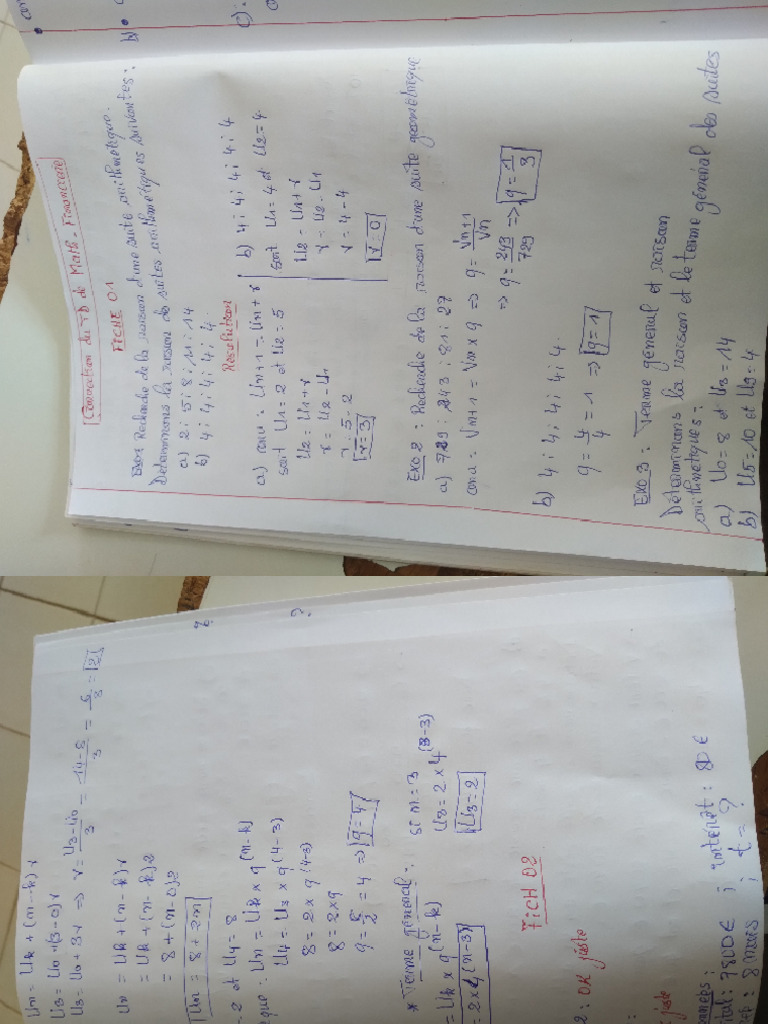 Correction du TD de Math-Financière
FICHE 01
EXO1 Recherche de la raison d'une suite arithmétique.
Déterminons la raison de suites arithmétiques suivantes:
a) 2 ; 5 ; 8 ; 11 ; 14
b) 4 ; 4 ; 4 ; 4 ; 4.
Resolution
a) on a : Un+1 = Un + r
soit U1 = 2 et U2 = 5
U2 = U1 + r
r = U2 - U1
r = 5 - 2
r = 3
b) 4 ; 4 ; 4 ; 4 ; 4
soit U1 = 4 et U2 = 4
U2 = U1 + r
r = U2 - U1
r = 4 - 4
r = 0
EXO 2 : Recherche de la raison d'une suite geometrique
a) 729 ; 243 ; 81 ; 27
on a : Vn+1 = Vn x q => q = Vn+1/Vn
=> q = 243/729 => q = 1/3
b) 4 ; 4 ; 4 ; 4 ; 4.
q = 4/4 = 1 => q = 1
EXO 3 : Terme général et raison
Déterminons la raison et le terme général des suites
arithmétiques :
a) U0 = 8 et U3 = 14
b) U5 = 10 et U9 = 4
Un = Uk + (n-k)r
U3 = U0 + (3-0)r
U3 = U0 + 3r => r = U3-U0/3 = 14-8/3 = 6/3 = 2
Un = Uk + (n-k)r
= Uk + (n-k)2
= 8 + (n-0)2
Un = 8 + 2n
= 2 et U4 = 8
que : Un = Uk x q(n-k)
U4 = U3 x q(4-3)
8 = 2 x q(4-3)
8 = 2 x q
q = 8/2 = 4 => q = 4
* Terme general :
= Uk x q(n-k)
= 2 x 4(n-3)
si n = 3
U3 = 2 x 4(3-3)
U3 = 2
FICH 02
2 : OK juste
juste
: 7800€ ; intérêt : 80€
: 8 mois ; t = ?